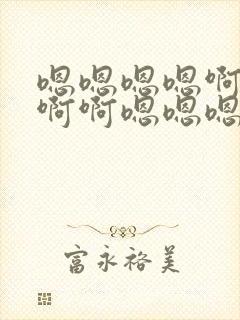 嗯嗯嗯嗯啊
啊啊嗯嗯嗯
富永裕美